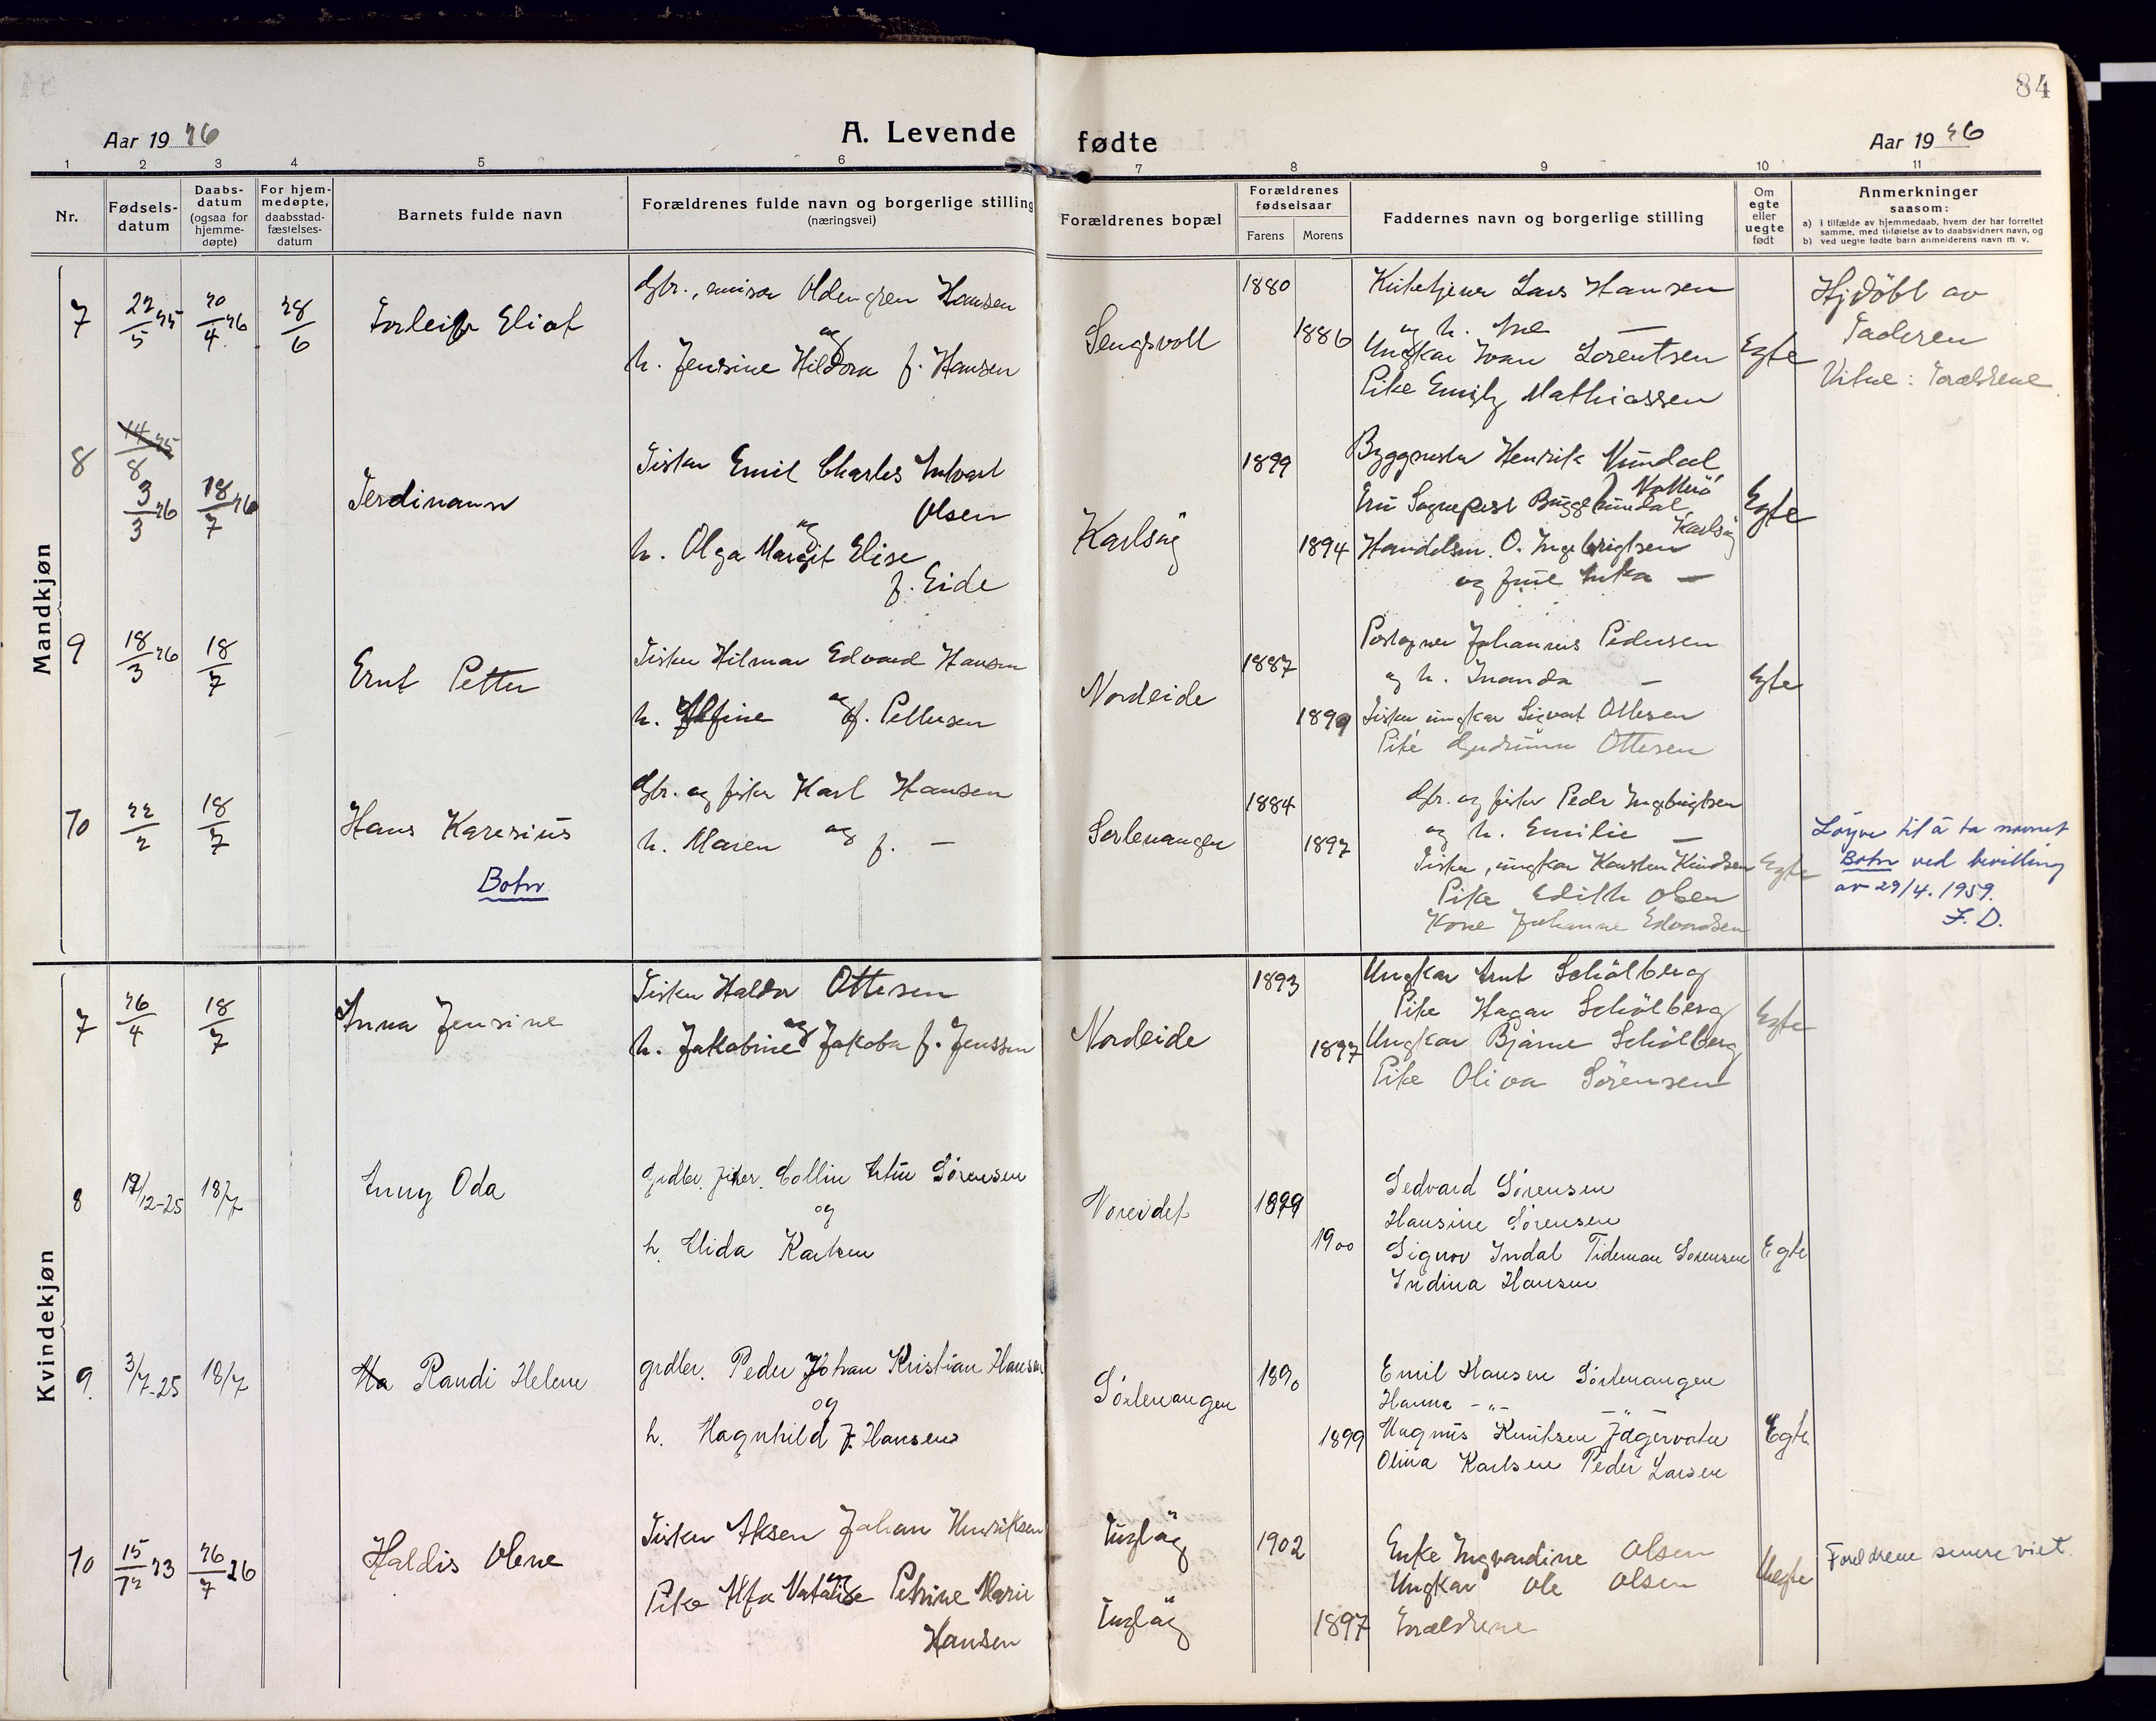 84
Aar 1926
A. Levende
fødte
Aar 1926
1 2 3 4 5 6 7 8 9 10 11
Nr.
Fødsels-
datum
Daabs-
datum
(ogsaa for
hjemme-
døpte)
For hjem-
medøpte,
daabsstad-
fæstelses-
datum
Barnets fulde navn
Forældrenes fulde navn og borgerlige stilling
(næringsvei)
Forældrenes bopæl
Forældrenes
fødselsaar
Farens Morens
Faddernes navn og borgerlige stilling
Om
egte
eller
uegte
født
Anmerkninger
saasom:
a) i tilfælde av hjemmedaab, hvem der har forrettet
samme, med tilføielse av to daabsvidners navn, og
b) ved uegte fødte barn anmelderens navn m. v.
Mandkjøn
7
22/5 25
20/4 26
28/6
Torleif Eliot
Gbr., emisær Oldengren Hansen
og
h. Jensine Hildora f. Hansen
Lengsvoll
1880
1886
Kirketjener Lars Hansen
og h. Ane —
Ungkar Ivan Lorentsen
Pike Emily Mathiassen
Egte
Hjdöbt av
Faderen
Vitne: Forældrene
8
14/8 25
3/3 26
18/7 26
Ferdinann
Fisker Emil Charles Antvart
Olsen
og
h. Olga Margit Elise
f. Eide
Karlsöy
1899
1894
Byggmester Henrik Nundal,
Fru Sogneprest Bugge
Karlsöy
Handelsm. O. Ingebrigtsen
og frue Anka —
Egte
9
18/3 26
18/7
Ernt Petter
Fisker Hilmar Edvard Hansen
og
h. Alfine f. Pettersen
Nordeide
1887
1899
Postopner Johannes Pedersen
og h. Inanda —
Fisker ungkar Sigvart Ottesen
Pike Gudrunn Ottesen
Egte
10
22/2
18/7
Hans Karesius
Botn
Gbr. og fisker Karl Hansen
og
h. Maren f. —
Sörlenangen
1884
1897
Gbr. og fisker Peder Ingebrigtsen
og h. Emilie —
Fisker, ungkar Karsten Knudsen
Pike Edith Olsen
Kone Johanne Edvardsen
Egte
Løyve til å ta navnet
Botn ved bevilling
av 29/4. 1959.
F. D.
Kvindekjøn
7
26/4
18/7
Anna Jensine
Fisker Haldor Ottesen
og
h. Jakobine Jakoba f. Jenssen
Nordeide
1893
1897
Ungkar Arnt Schölberg
Pike Hagar Schölberg
Ungkar Bjarne Schölberg
Pike Oliva Sörensen
Egte
8
19/12-25
18/7
Anny Oda
Grdbr. fisker. Collin Artur Sörensen
og
h. Elida Karlsen
Noreidet
1899
1900
Sedvard Sörensen
Hansine Sörensen
Signor Indal Tideman Sörensen
Indina Hansen
Egte
9.
3/7-25
18/7
Ha Randi Helene
grdbr. Peder Johan Kristian Hansen
og
h. Magnhild f. Hansen
Sörlenangen
1890
1899
Emil Hansen Sörlenangen
Hanna -"- -"-
Magnus Knutsen Jägervatn
Olina Karlsen Peder Larsen
Egte
10
15/12 23
26/7 26
Haldis Olene
Fisker Aksen Johan Henriksen
og
Pike Alfa Natalise Petrine Marie
Hansen
1902
1897
Enke Ingvardine Olsen
Ungkar Ole Olsen
Forældrene
Uegte
Foreldrene senere viet.